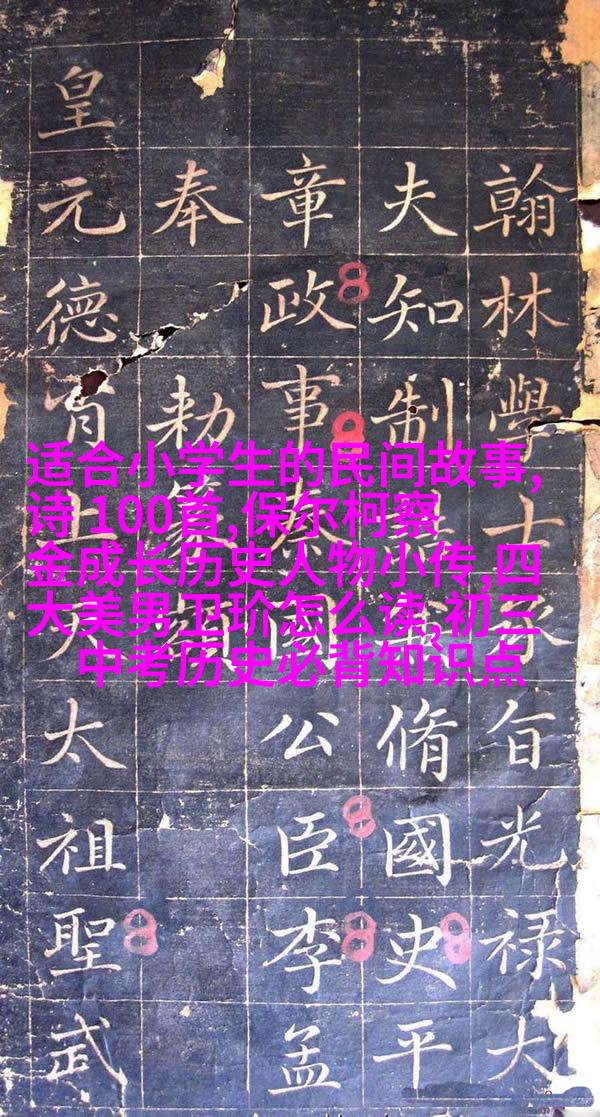 翰林學士承旨光禄大
夫知制脩國史平
章政事秦國公臣李孟
奉勅
皇元德肖上天太祖聖武
适合小学生的民间故事,
诗 100首,保尔柯察
金成长历史人物小传,四
大美男卫玠怎么读,初三
中考历史必背知识点